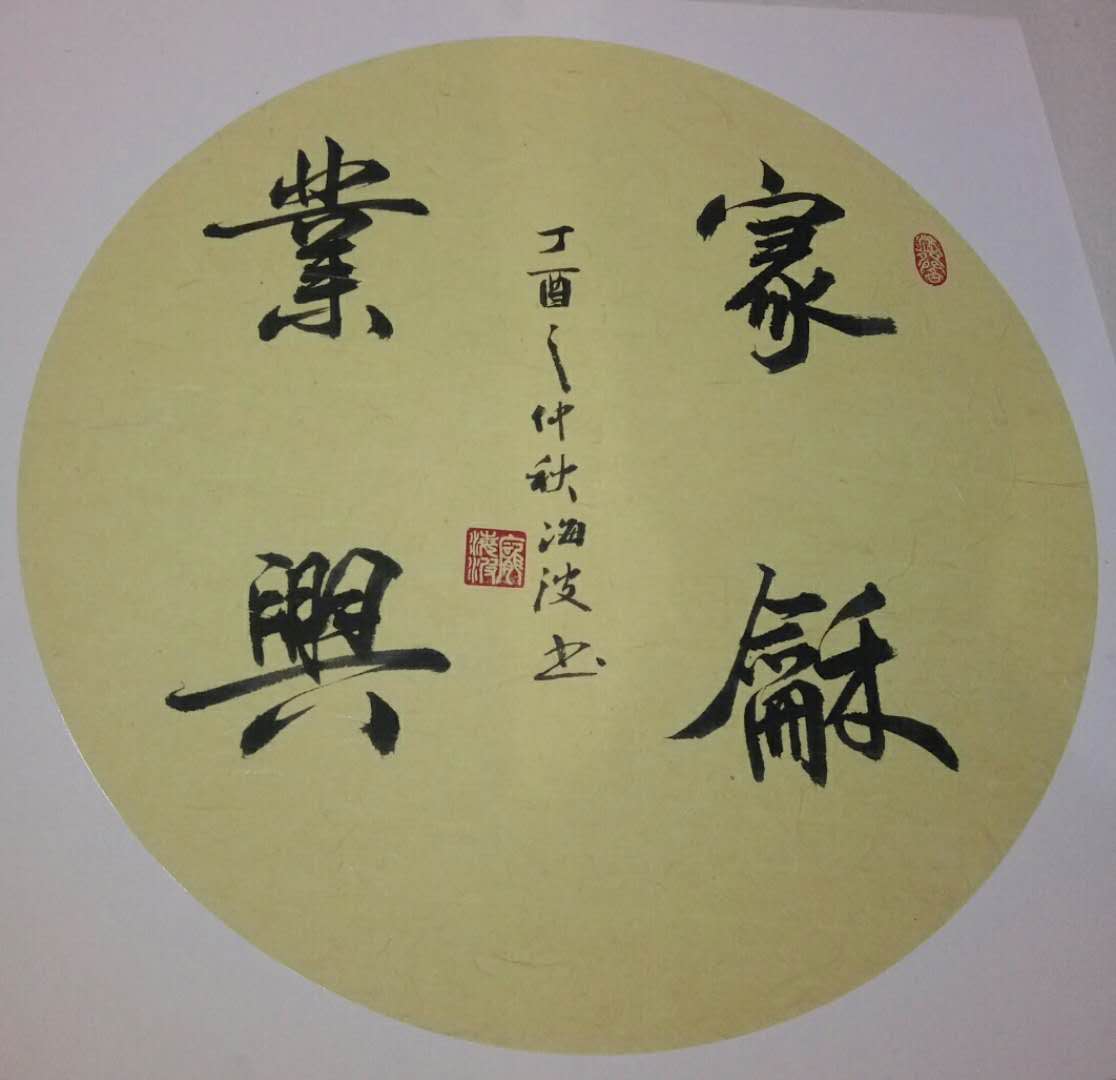 家龢
業興
丁酉之仲秋海波书